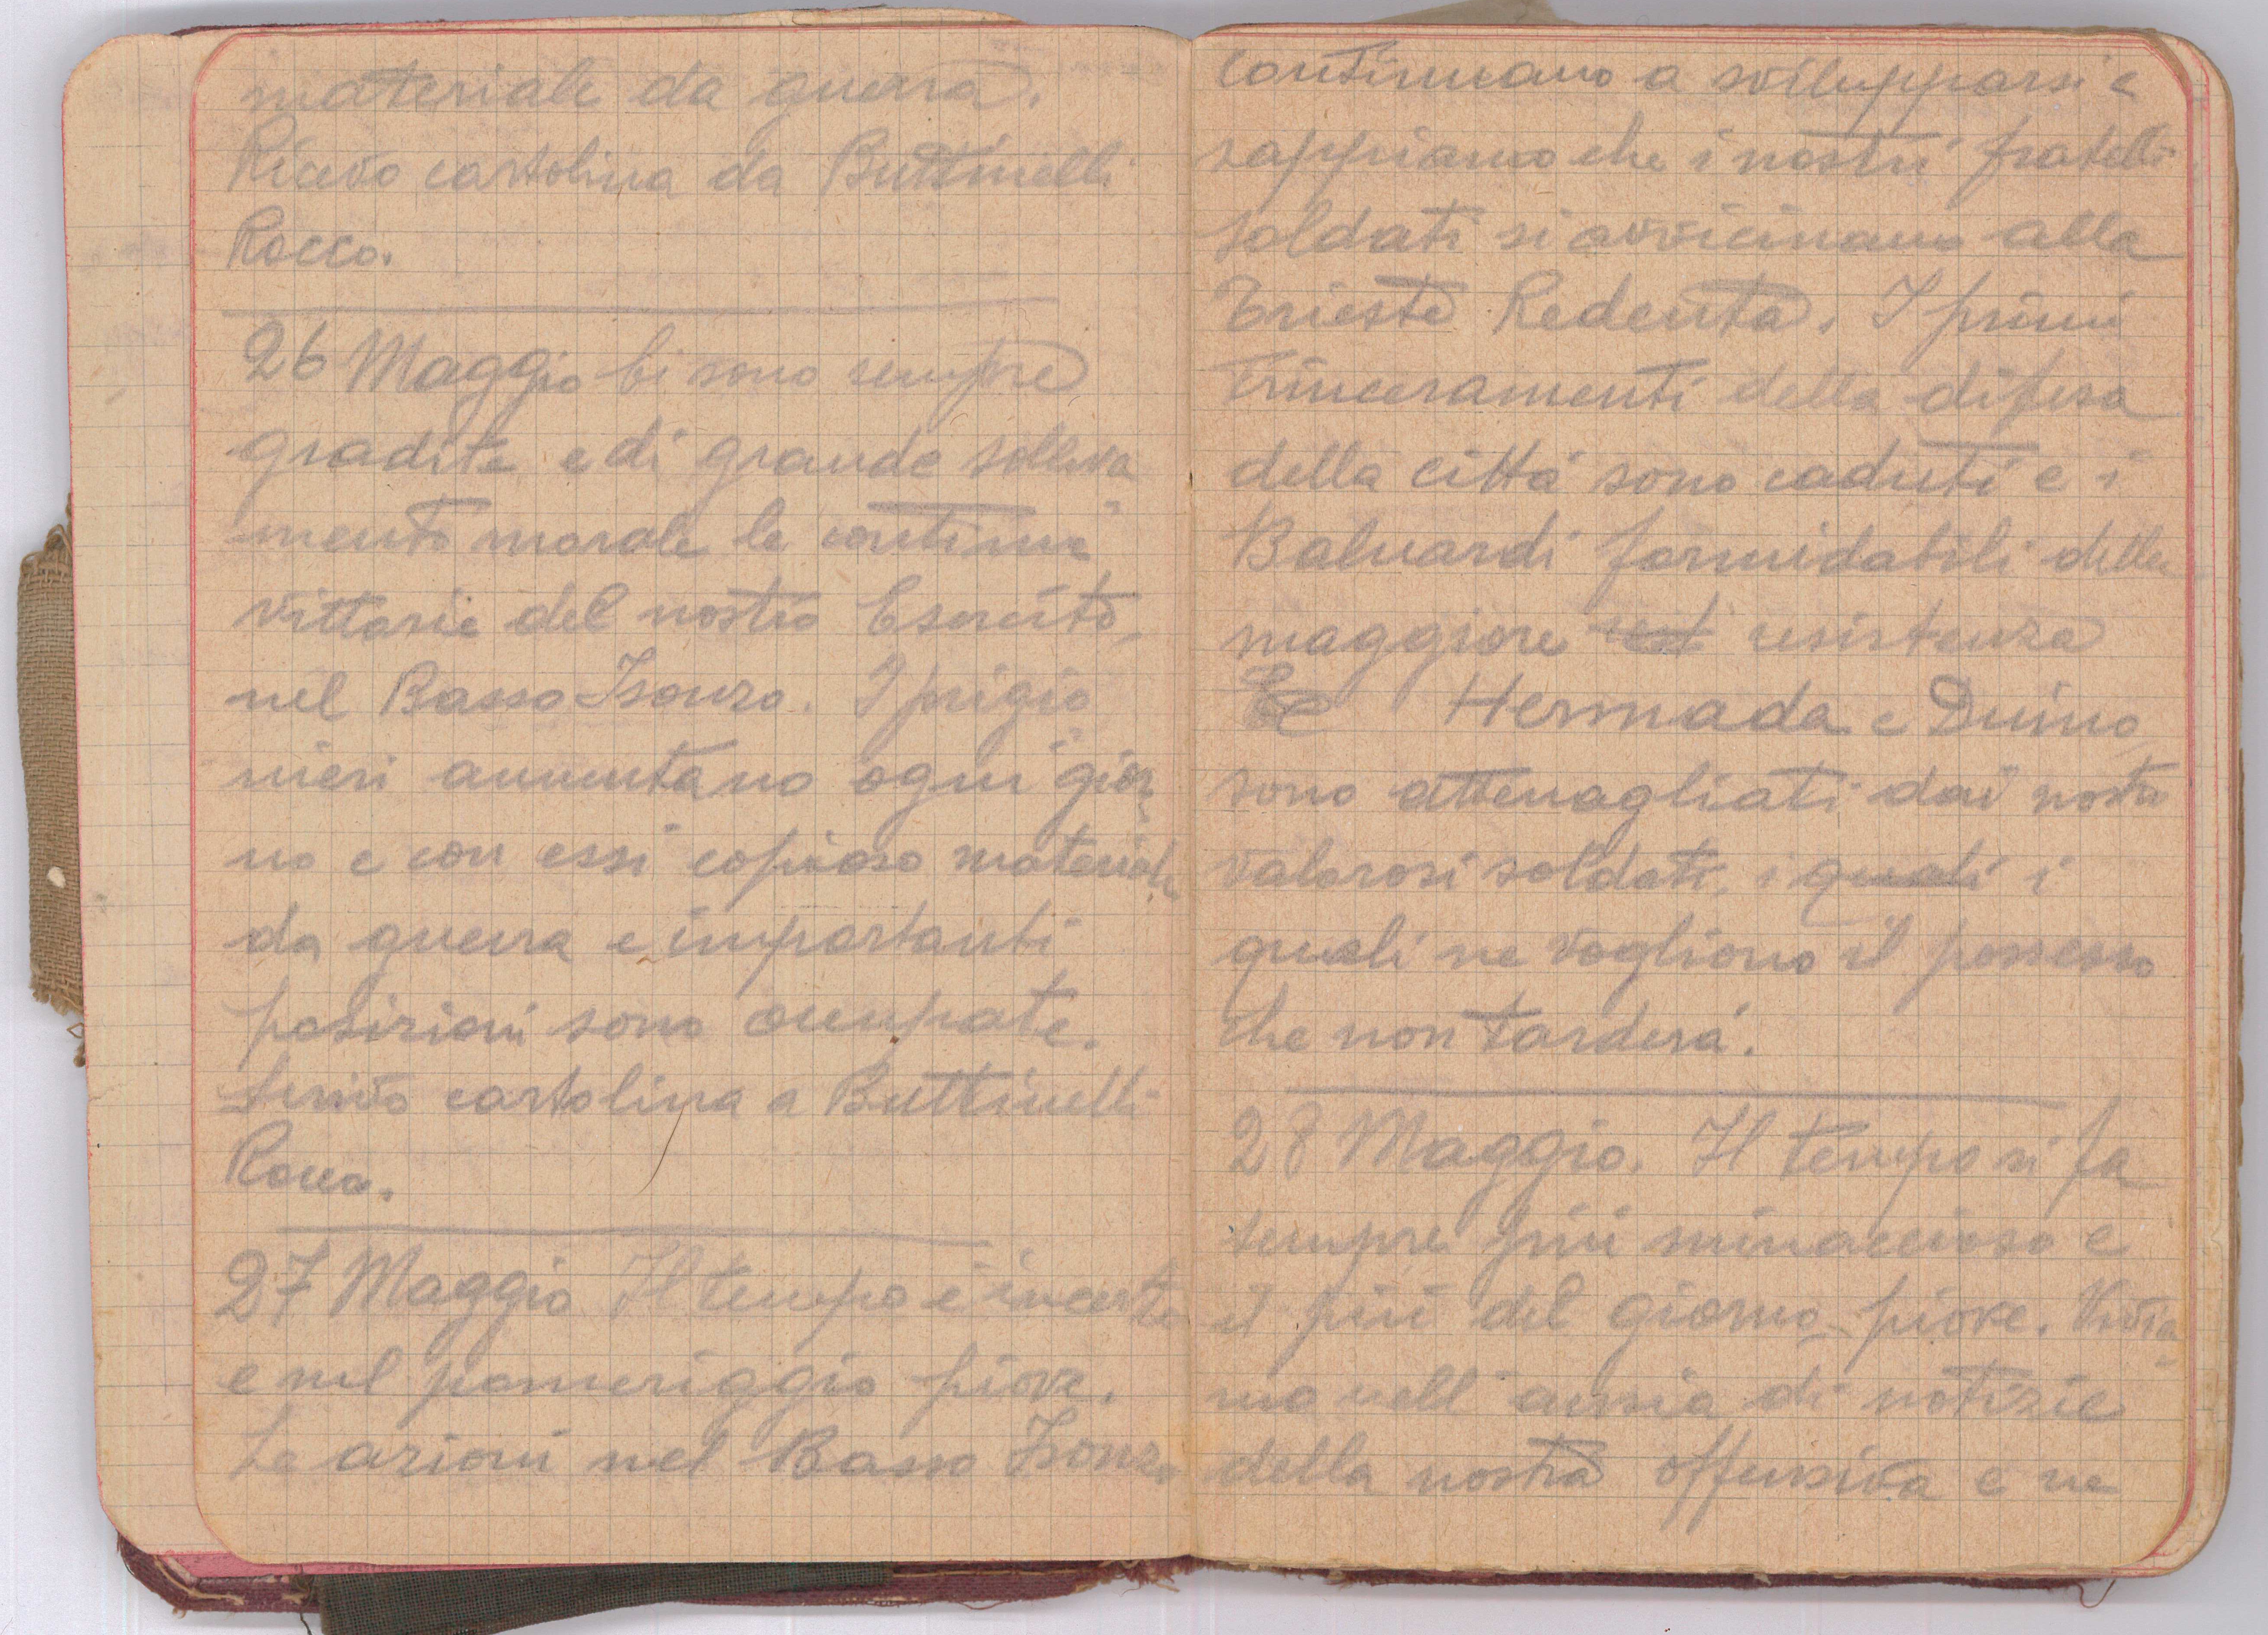 materiale da guerra.
Ricevo cartolina da Buttinelli
Rocco.
26 Maggio Ci sono sempre
gradite e di grande solleva
mento morale le continue
vittorie del nostro Esercito
nel Basso Isonzo. I prigio
nieri aumentano ogni gior
no e con essi copioso materiale
da guerra e importanti
posizioni sono occupate.
Scrivo cartolina a Buttinelli
Rocco.
27 Maggio Il tempo é incerto
e nel pomeriggio piove.
Le azioni nel Basso Isonzo
continuano a svilupparsi e
sappiamo che i nostri fratelli
soldati si avvicinano alla
Trieste Redenta. I primi
trinceramenti della difesa
della cittá sono caduti e i
Baluardi formidabili della
maggiore resistenza
Hermada e Duino
sono attenagliati dai nostri
valorosi soldati, i quali i
quali ne vogliono il possesso
che non tarderá.
28 Maggio. Il tempo si fa
sempre piú minaccioso e
il piú del giorno piove. Vivia
mo nell'ansia di notizie
della nostra offensiva e ne